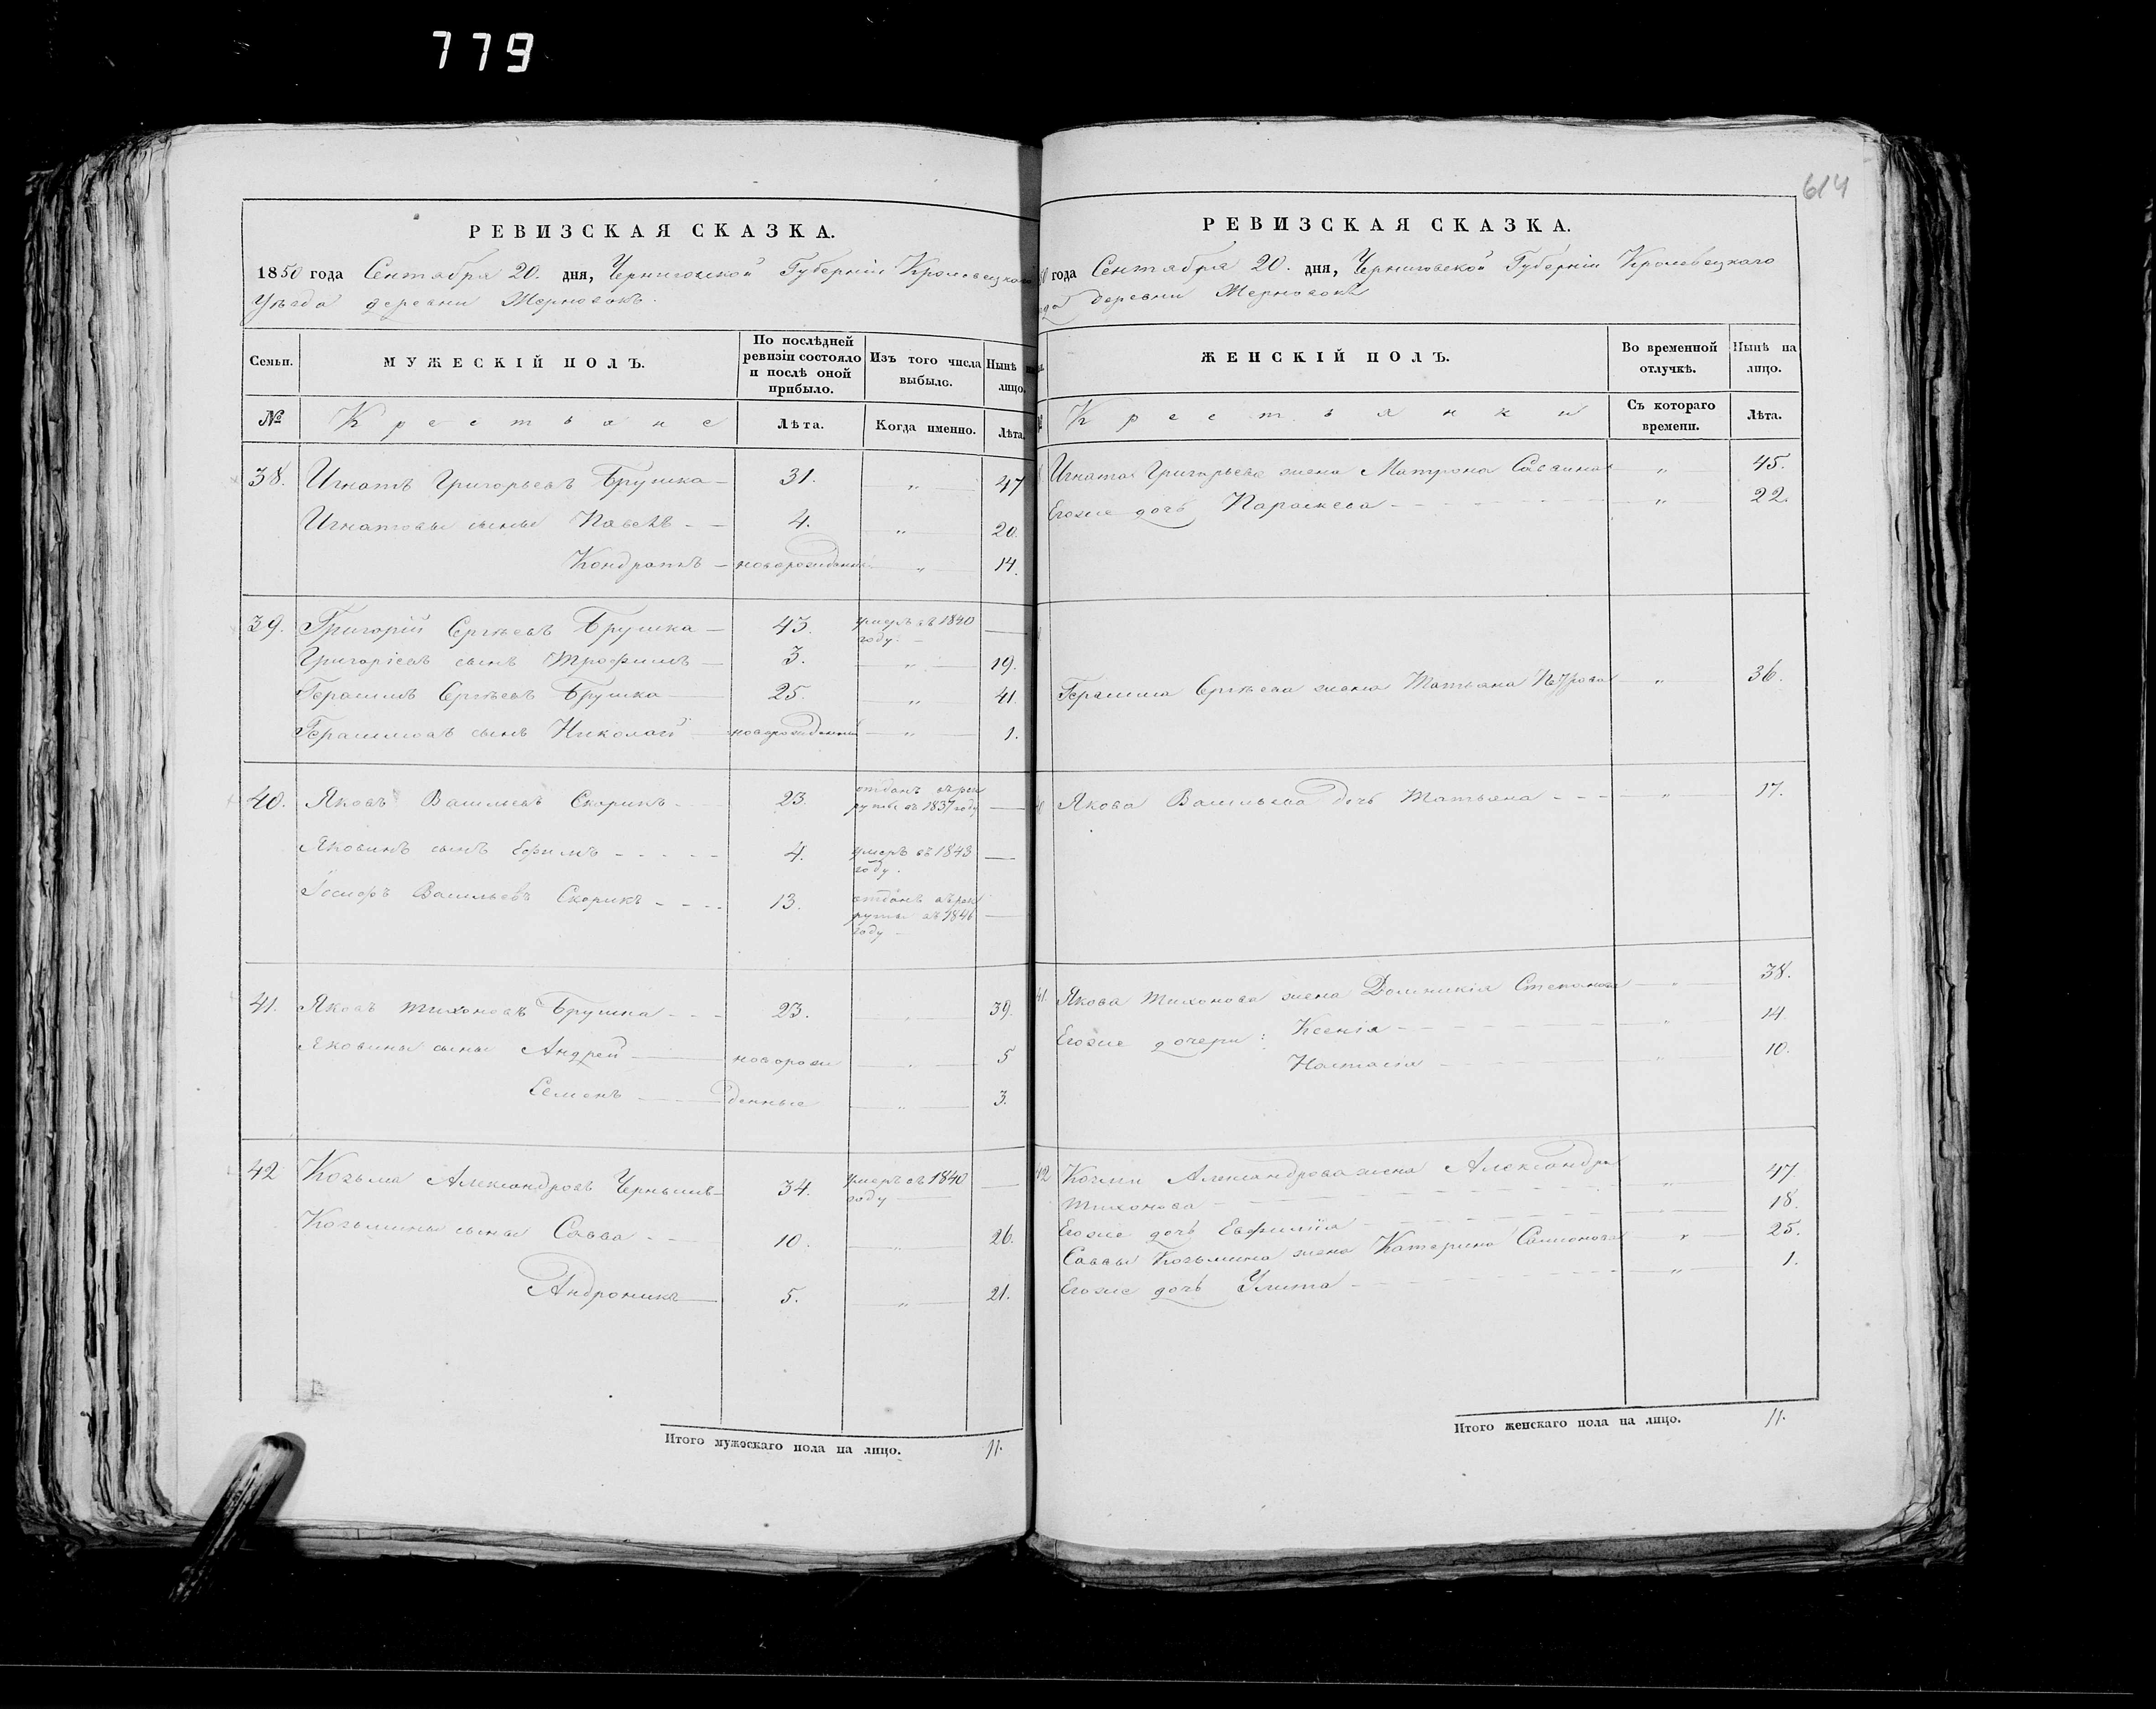 779
614
РЕВИЗСКАЯ СКАЗКА.
1850 года Сентября 20. дня, Черниговской Губерніи Кролевецкаго
Уѣзда деревни Жерновокъ.
Семьи.
МУЖЕСКІЙ ПОЛЪ.
По послѣдней ревизіи состояло и послѣ оной прибыло.
Изъ того числа выбыло.
Нынѣ на лицо.
№
Крестьяне
Лѣта.
Когда именно.
Лѣта.
38. Игнатъ Григорьевъ Брушка — 31. — „ — 47
Игнатовы сыны Павелъ — — 4. — „ — 20.
Кондратъ — новорожденный — „ — 14.
39. Григорій Сергѣевъ Брушка — 43. умеръ въ 1840 году. —
Григоріевъ сынъ Трофимъ — 3. — „ — 19.
Герасимъ Сергѣевъ Брушка — 25. — „ — 41.
Герасимовъ сынъ Николай — новорожденный — „ — 1.
40. Яковъ Васильевъ Скорикъ — 23. отданъ въ рекруты въ 1837 году —
Яковинъ сынъ Ефимъ - - - - - 4. умеръ въ 1843 году. —
Іосифъ Васильевъ Скорикъ - - - - 13. отданъ въ рекруты въ 1846 году —
41. Яковъ Тихоновъ Брушка - - - 23. — „ — 39.
Яковины сыны Андрей — новорож — „ — 5
Семенъ — денные — „ — 3.
42 Козьма Александровъ Чернышъ — 34. умеръ въ 1840 году —
Козьмины сыны Савва - — 10. — „ — 26.
Андроникъ — 5. — „ — 21.
Итого мужескаго пола на лицо. 11.
РЕВИЗСКАЯ СКАЗКА.
50 года Сентября 20. дня, Черниговской Губерніи Кролевецкаго
деревни Жерновокъ
ЖЕНСКІЙ ПОЛЪ.
Во временной отлучкѣ.
Нынѣ на лицо.
Крестьянки
Съ котораго времени.
Лѣта.
Игната Григорьева жена Матрона Саввина — „ — 45.
Егоже дочь Параскева - - - — „ — 22.
Герасима Сергѣева жена Татьяна Петрова — „ — 36.
Якова Васильева дочь Татьяна - - - — „ — 17.
41. Якова Тихонова жена Домникія Степанова — „ — 38.
Егоже дочери: Ксенія - - - — „ — 14.
Настасія - - - — „ — 10.
42 Козьми Александрова жена Александра
Тихонова - - - — „ — 47.
Егоже дочь Евфимія - - - — „ — 18.
Саввы Козьмина жена Катерина — „ — 25.
Егоже дочь Улита - - - — „ — 1.
Итого женскаго пола на лицо. 11.